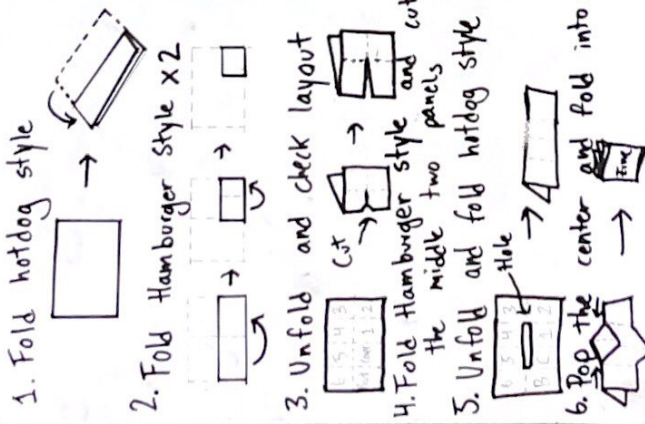 1. Fold hotdog style
2. Fold Hamburger Style x2
3. Unfold and check layout
6 5 4 3
1 2
Cut
4. Fold Hamburger style and cut
the middle two panels
5. Unfold and fold hotdog style
6 5 4 3
B C 1 2
Hole
6. Pop the center and fold into
Zine